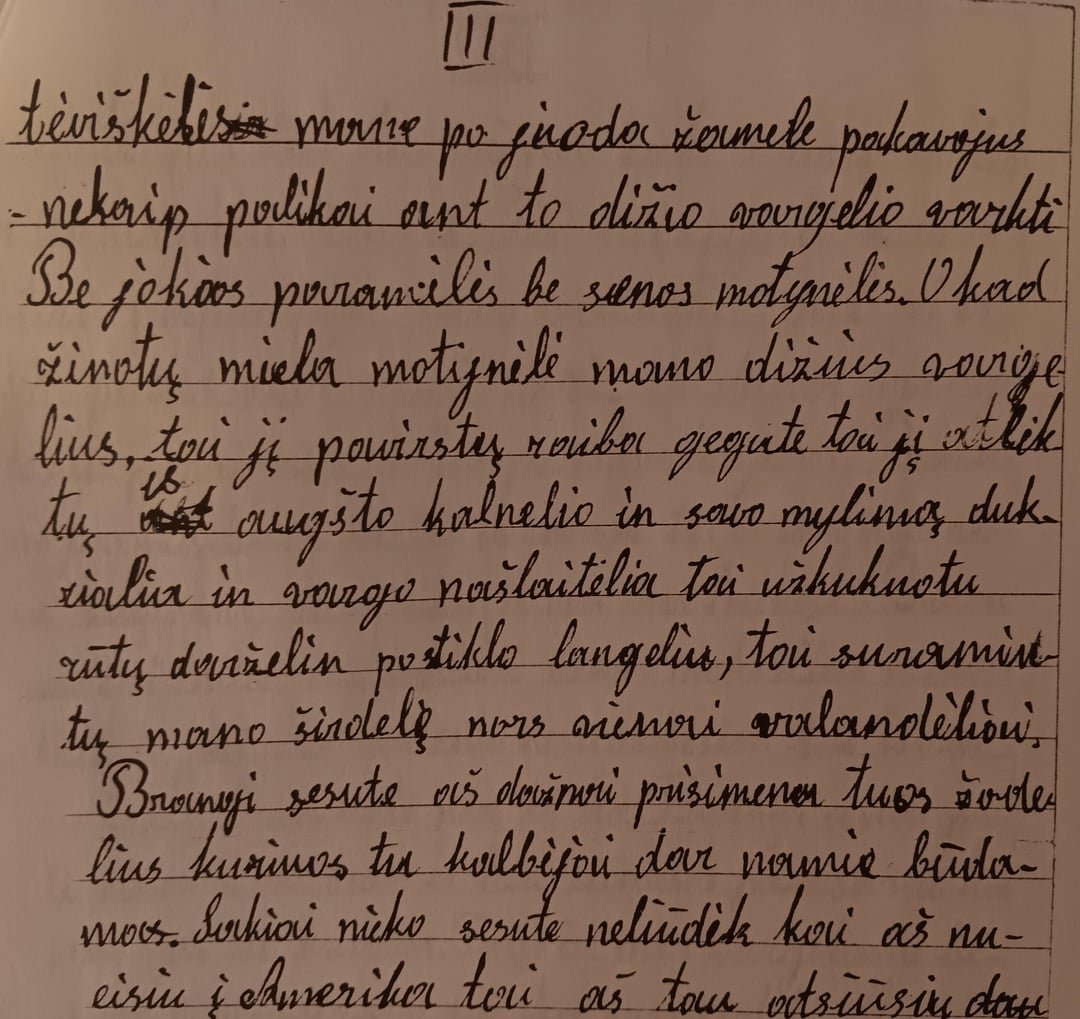 III
tėviškėlės mane po juoda žamele pakavojus
- nekaip palikai ant to dižio vargelio varkti
Be jokios paramėlės be senos motynėlės. O kad
žinotų miela motynėlė mano dižius varge
lius, tai jį pavirstų raiba gegute tai jį atlėk
tų iš augšto kalnelio in savo mylimą duk-
rialia in vargo našlaitėlia tai užkuknotu
rūtų darželin po stiklo langeliu, tai suramin-
tų mano širdelę nors vienai valandėliai.
Brangi sesute aš dažnai prisimena tuos žode
lius kuriuos tu kalbėjai dar namie būda-
mas. Sakiai nieko sesute neliūdėk kai aš nu-
eisiu į Amerika tai aš tau atsiūsiu dau